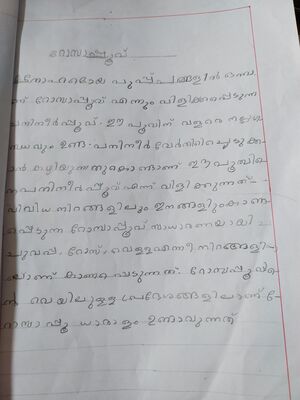 റോസാപ്പൂവ്
മനോഹരമായ പുഷ്പങ്ങളിൽ ഒന്നാ
ണ് റോസാപ്പൂവ് എന്നും വിളിക്കപ്പെടുന്ന
പനിനീർപ്പൂവ്. ഈ പൂവിന് വളരെ നല്ല
ഗന്ധവും ഉണ്ട്. പനിനീർ വേർതിരിച്ചെടുക്കു
ാൻ കഴിയുന്നതുകൊണ്ടാണ് ഈ പൂവിനെ
പനിനീർപ്പൂവ് എന്ന് വിളിക്കുന്നത്.
വിവിധ നിറങ്ങളിലും ഇനങ്ങളിലും കാണ
പ്പെടുന്ന റോസാപ്പൂവ് സാധാരണയായി
ചുവപ്പ്, റോസ്, വെള്ള എന്നീ നിറങ്ങളി
ലാണ് കാണപ്പെടുന്നത്. റോസാപ്പൂവിന്
വെയിലുള്ള പ്രദേശങ്ങളിലാണ് റോ
സാപ്പൂ ധാരാളം ഉണ്ടാവുന്നത്